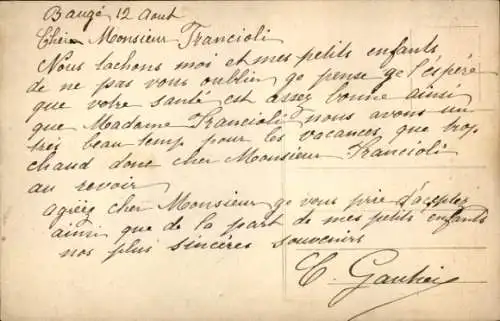 Baugé 12 Aout
Cher Monsieur Francioli
Nous tachons moi et mes petits enfants
de ne pas vous oublier ge pense ge l'éspéré
que votre santé est assez bonne ainsi
que Madame Francioli nous avons un
trés beau temp pour les vacances, que trop
chaud donc cher Monsieur Francioli
au revoir
agréez cher Monsieur ge vous prie d'accepter
ainsi que de la part de mes petits enfants
nos plus sincéres souvenirs
C. Gautier